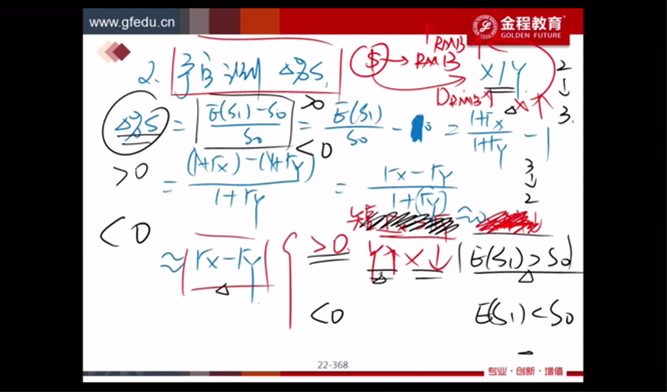 www.gfedu.cn
金程教育
GOLDEN FUTURE
2. 预测 Δ%S
$ → RMB
RMB
X / Y
2 ↓ 3
Δ%S = E(S₁) - S₀ / S₀ = E(S₁) / S₀ - 1 = 1+rx / 1+ry - 1
>0
<0
>0
<0
= (1+rx) - (1+ry) / 1+ry = rx - ry / 1+(ry) ≈0
3 ↓ 2
≈ |rx - ry| { >0 Y↑ X↓ E(S₁) > S₀
<0 E(S₁) < S₀
22-368
专业·创新·增值